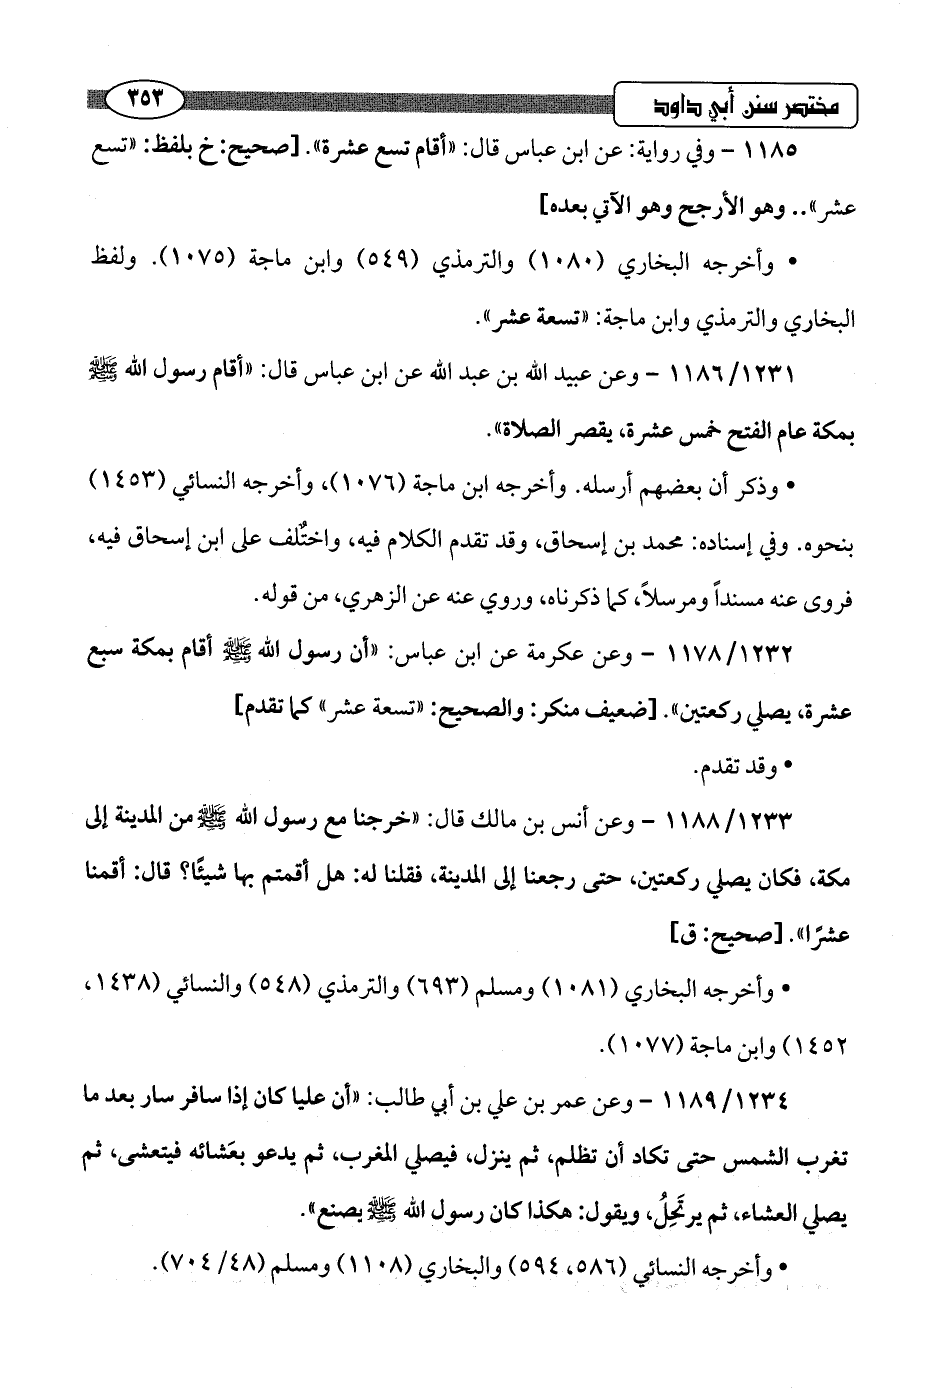 مختصر سنن أبي داود ٣٥٣
١١٨٥ - وفي رواية: عن ابن عباس قال: «أقام تسع عشرة». [صحيح: خ بلفظ: «تسع
عشر».. وهو الأرجح وهو الآتي بعده]
• وأخرجه البخاري (١٠٨٠) والترمذي (٥٤٩) وابن ماجة (١٠٧٥). ولفظ
البخاري والترمذي وابن ماجة: «تسعة عشر».
١١٨٦/١٢٣١ - وعن عبيد الله بن عبد الله عن ابن عباس قال: «أقام رسول الله ﷺ
بمكة عام الفتح خمس عشرة، يقصر الصلاة».
• وذكر أن بعضهم أرسله. وأخرجه ابن ماجة (١٠٧٦)، وأخرجه النسائي (١٤٥٣)
بنحوه. وفي إسناده: محمد بن إسحاق، وقد تقدم الكلام فيه، واختُلف على ابن إسحاق فيه،
فروى عنه مسنداً ومرسلاً، كما ذكرناه، وروي عنه عن الزهري، من قوله.
١١٧٨/١٢٣٢ - وعن عكرمة عن ابن عباس: «أن رسول الله ﷺ أقام بمكة سبع
عشرة، يصلي ركعتين». [ضعيف منكر: والصحيح: «تسعة عشر» كما تقدم]
• وقد تقدم.
١١٨٨/١٢٣٣ - وعن أنس بن مالك قال: «خرجنا مع رسول الله ﷺ من المدينة إلى
مكة، فكان يصلي ركعتين، حتى رجعنا إلى المدينة، فقلنا له: هل أقمتم بها شيئًا؟ قال: أقمنا
عشرًا». [صحيح: ق]
• وأخرجه البخاري (١٠٨١) ومسلم (٦٩٣) والترمذي (٥٤٨) والنسائي (١٤٣٨،
١٤٥٢) وابن ماجة (١٠٧٧).
١١٨٩/١٢٣٤ - وعن عمر بن علي بن أبي طالب: «أن عليا كان إذا سافر سار بعد ما
تغرب الشمس حتى تكاد أن تظلم، ثم ينزل، فيصلي المغرب، ثم يدعو بعَشائه فيتعشى، ثم
يصلي العشاء، ثم يرتَحِلُ، ويقول: هكذا كان رسول الله ﷺ يصنع».
• وأخرجه النسائي (٥٨٦، ٥٩٤) والبخاري (١١٠٨) ومسلم (٧٠٤/٤٨).